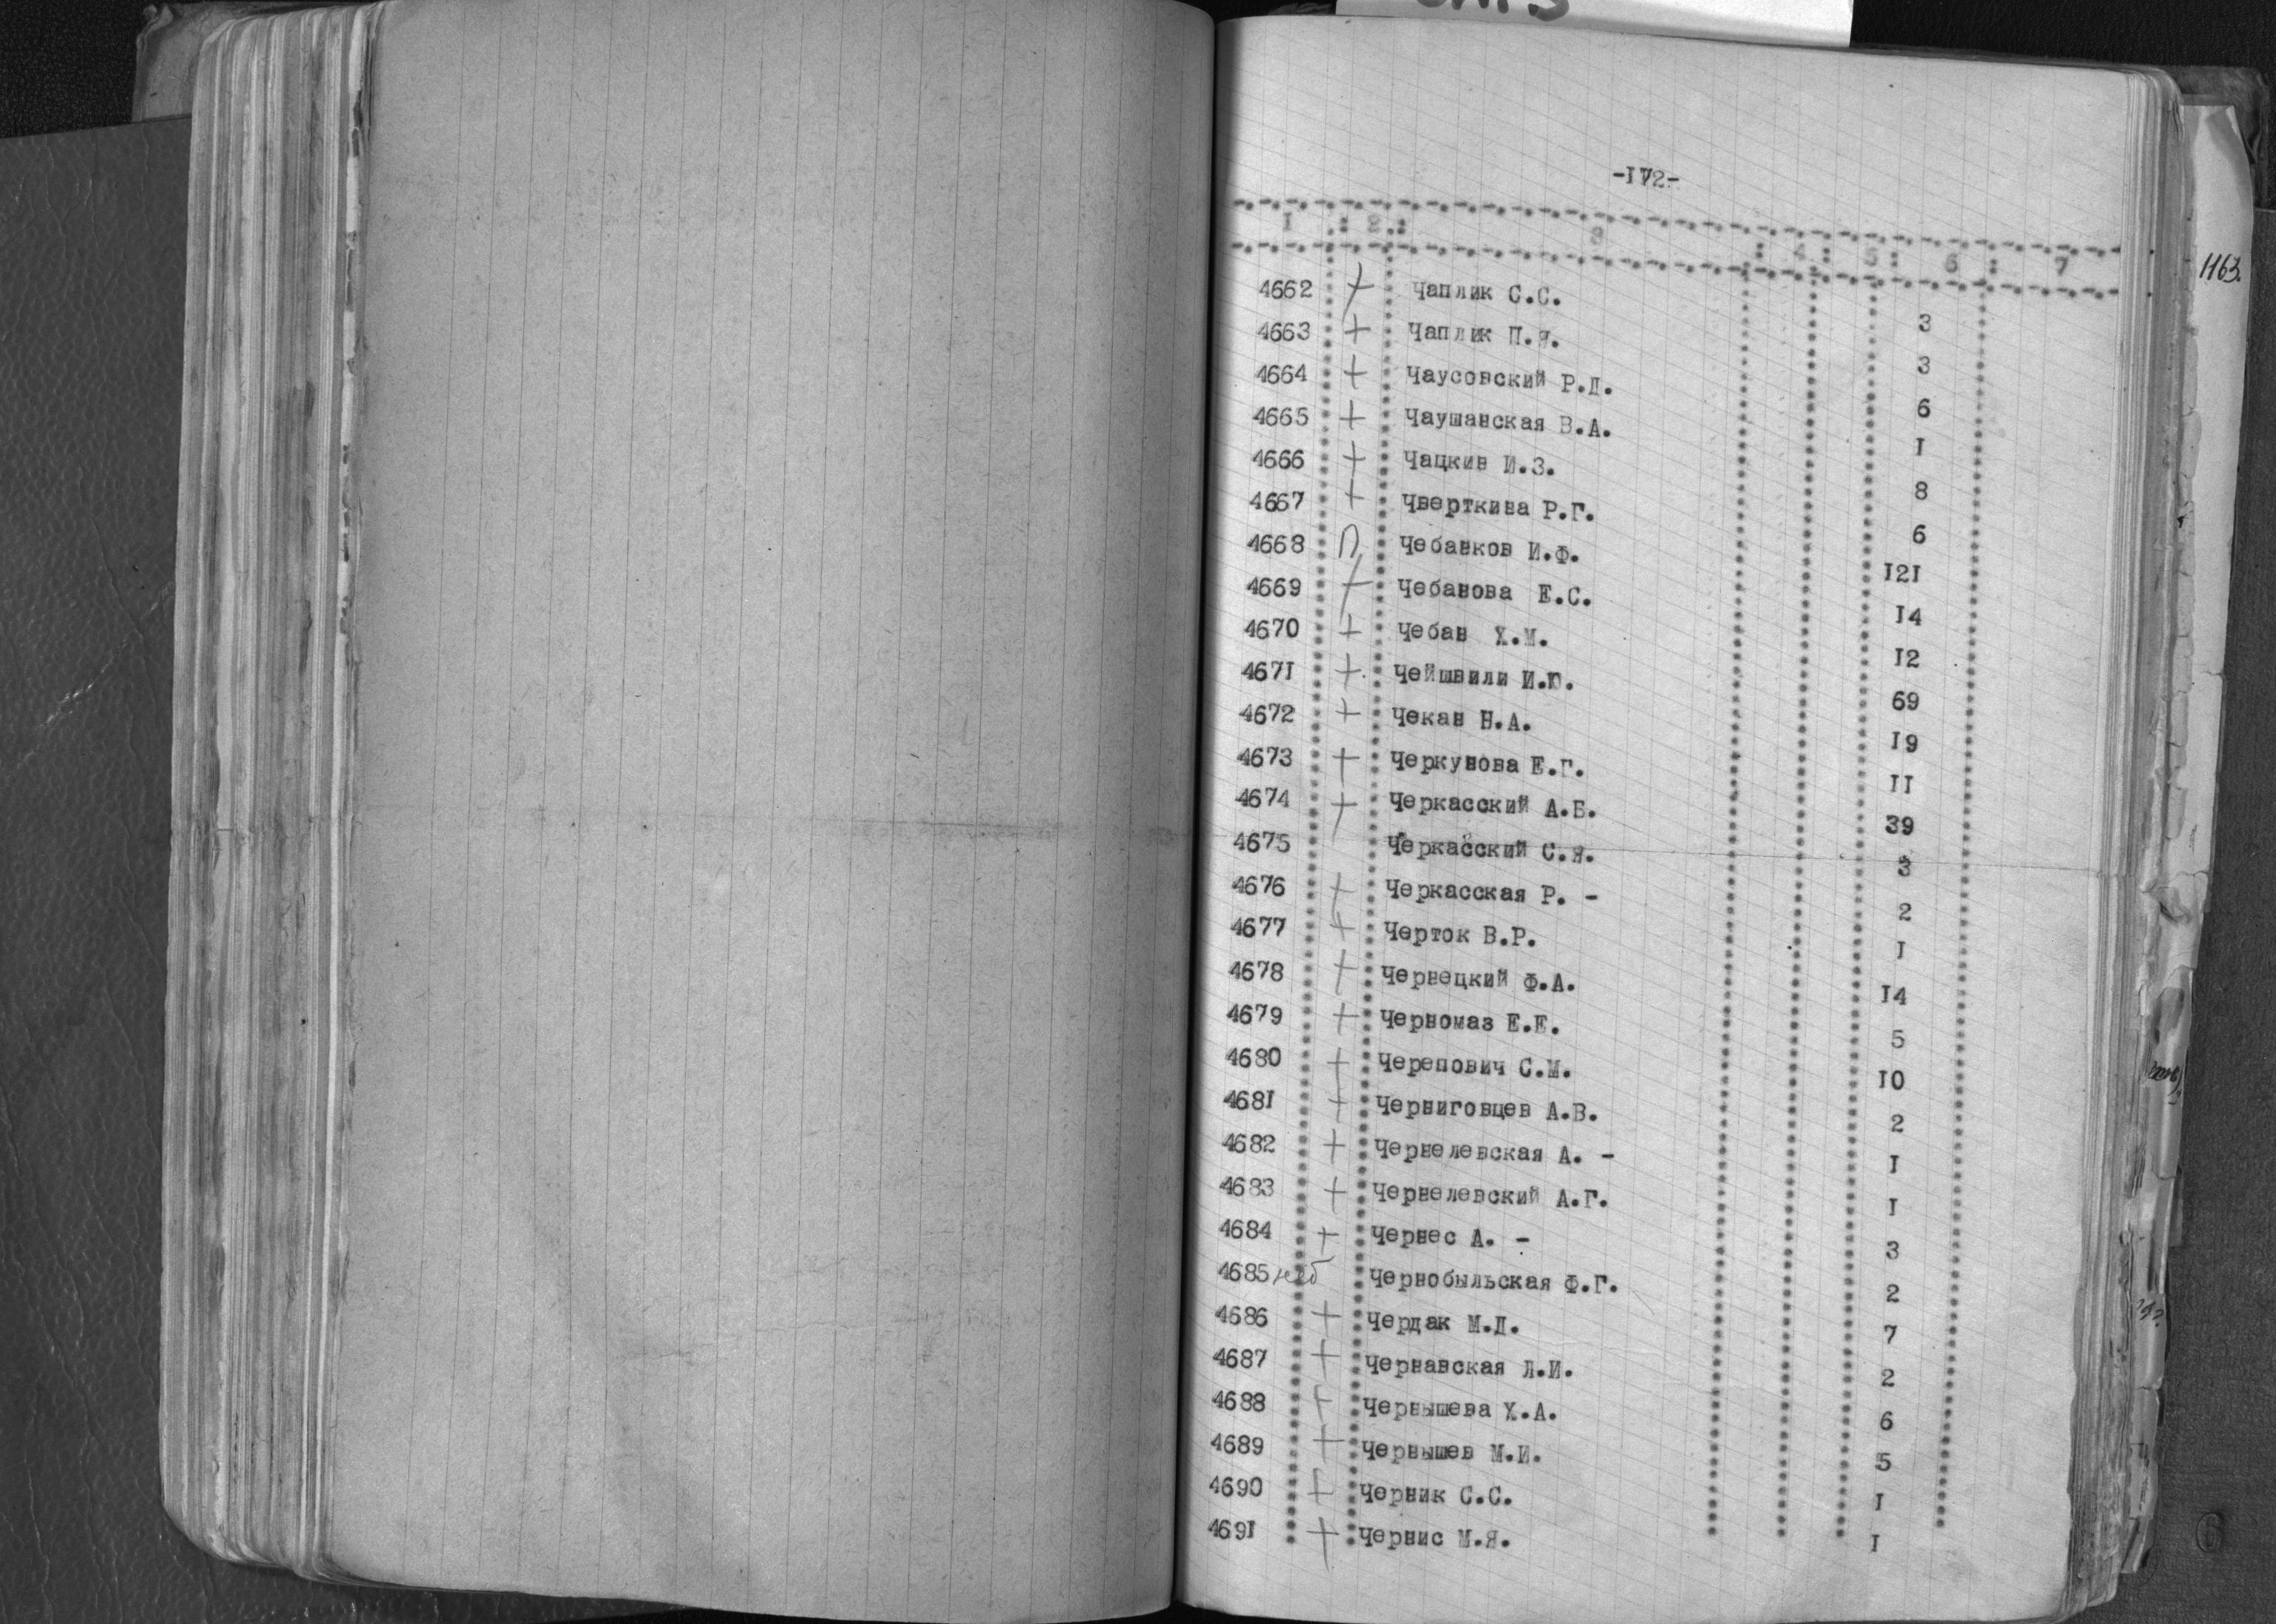 -172-
I : 2 : 3 : 4 : 5 : 6 : 7
1163.
4662 + Чаплик С.С. 3
4663 + Чаплик П.Я. 3
4664 + Чаусовский Р.Д. 6
4665 + Чаушанская В.А. I
4666 + Чацкин И.З. 8
4667 + Чверткина Р.Г. 6
4668 П Чебанков И.Ф. I2I
4669 + Чебанова Е.С. I4
4670 + Чебан Х.М. I2
467I + Чейшвили И.Ю. 69
4672 + Чекан Н.А. I9
4673 + Черкунова Е.Г. II
4674 + Черкасский А.Б. 39
4675 Черкасский С.Я. 3
4676 + Черкасская Р. - 2
4677 + Черток В.Р. I
4678 + Чернецкий Ф.А. I4
4679 + Черномаз Е.Е. 5
4680 + Черепович С.М. I0
468I + Черниговцев А.В. 2
4682 + Чернелевская А. - I
4683 + Чернелевский А.Г. I
4684 + Чернес А. - 3
4685 Чернобыльская Ф.Г. 2
4686 + Чердак М.Д. 7
4687 + Чернавская Л.И. 2
4688 + Чернышева Х.А. 6
4689 + Чернышев М.И. 5
4690 + Черник С.С. I
469I + Чернис М.Я. I